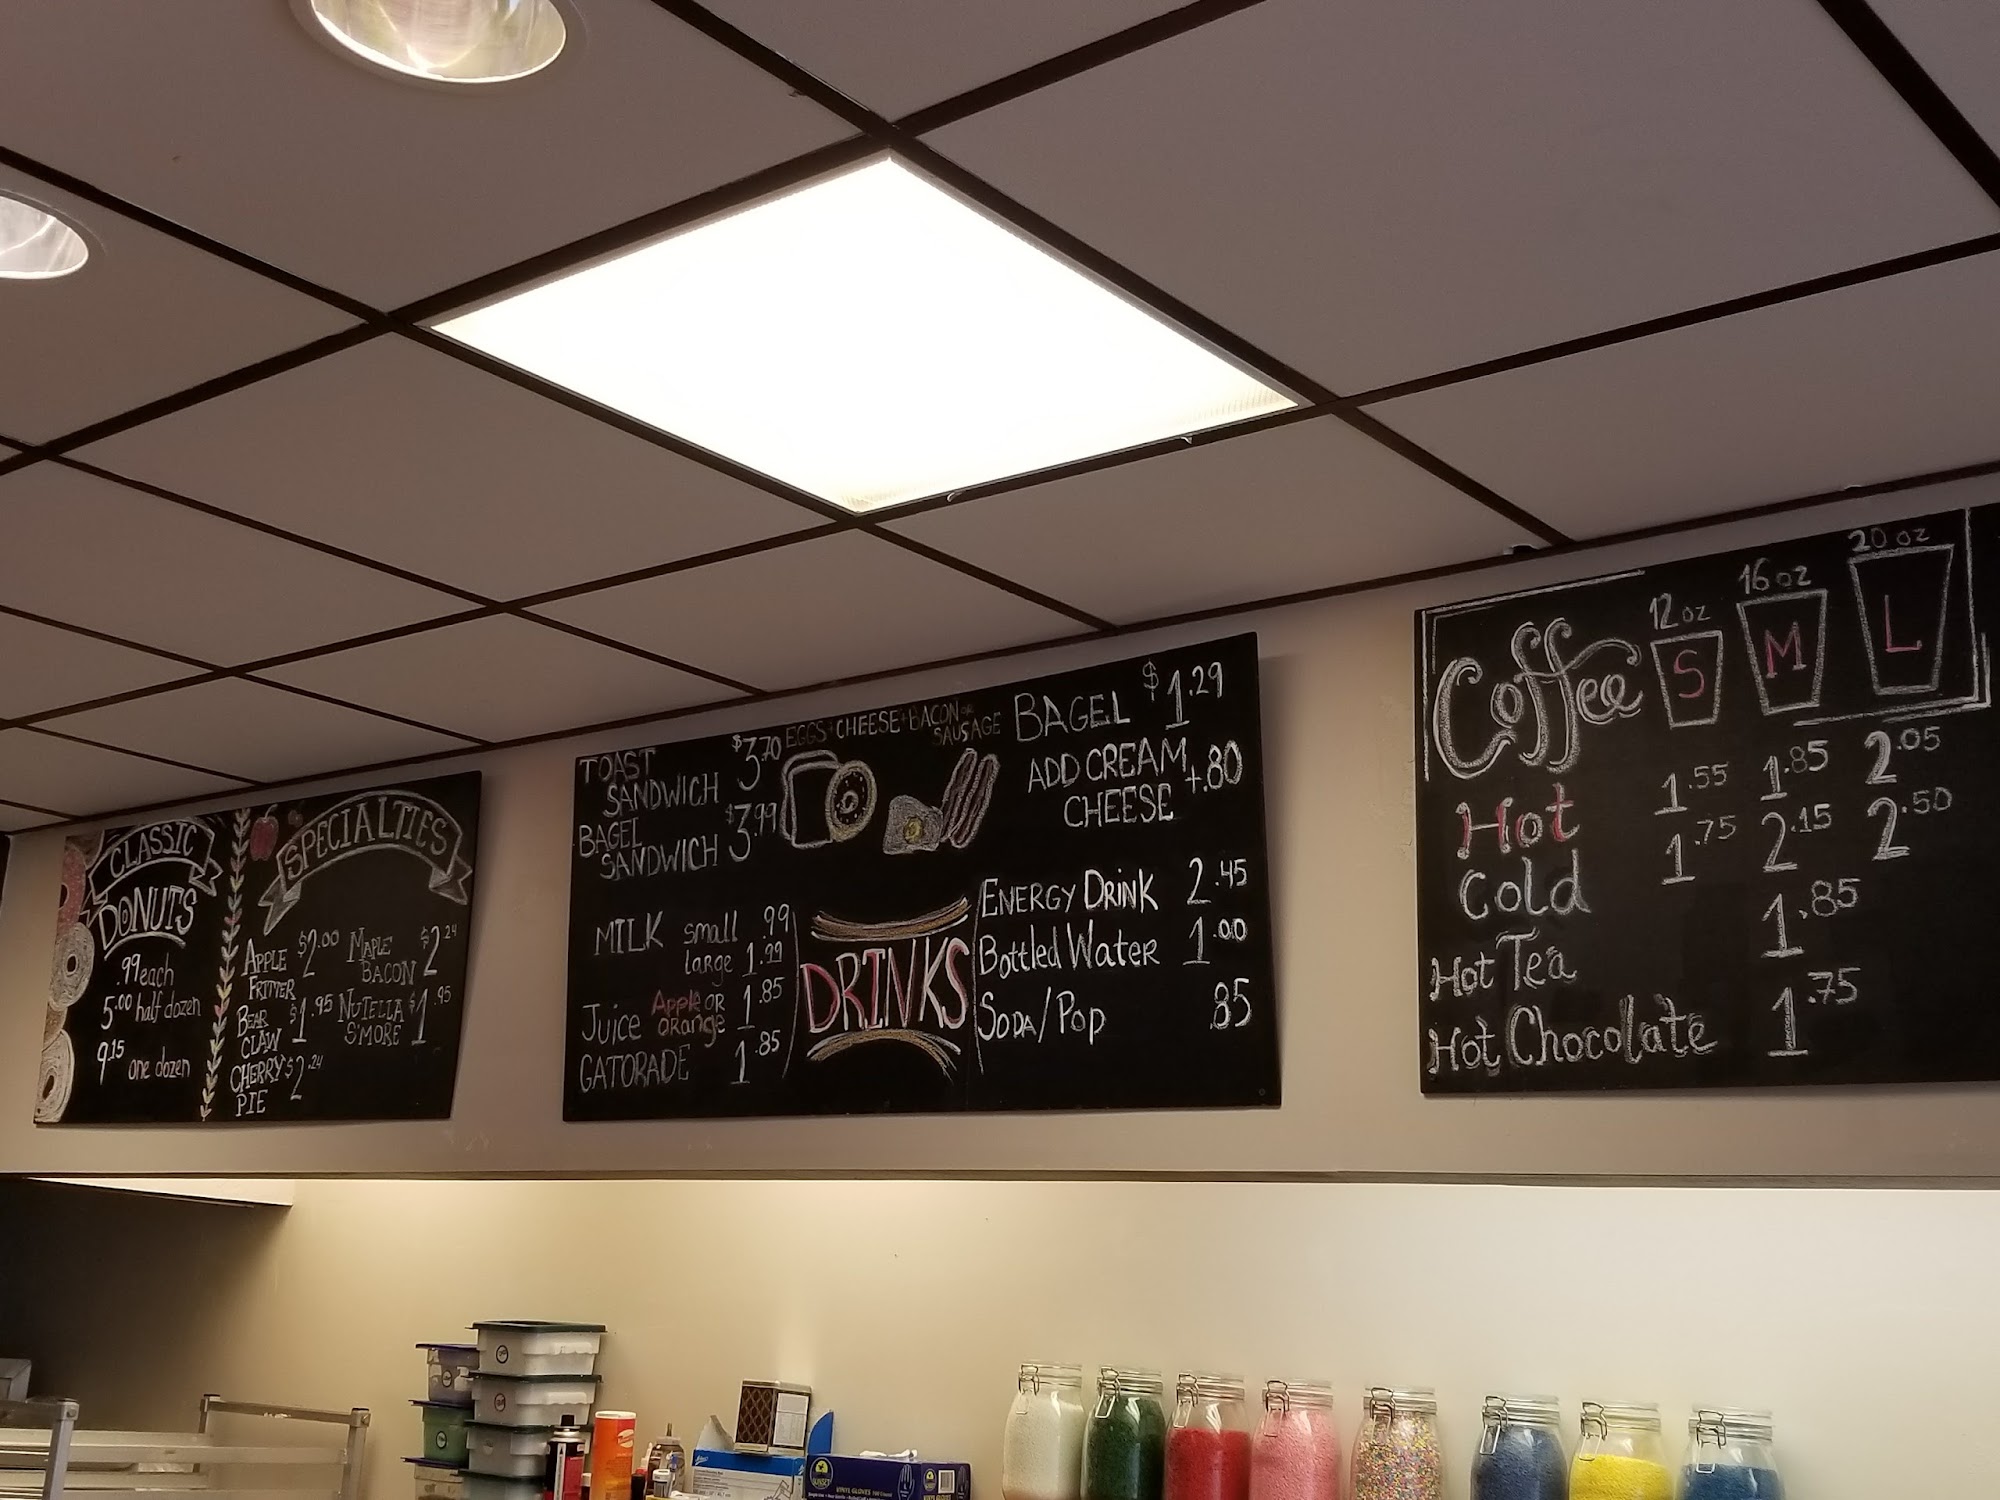 CLASSIC
DONUTS
.99 each
5.00 half dozen
9.15 one dozen
SPECIALTIES
APPLE FRITTER $2.00
BEAR CLAW $1.95
CHERRY PIE $2.24
MAPLE BACON $2.24
NUTELLA S'MORE $1.95
TOAST SANDWICH $3.70
BAGEL SANDWICH $3.99
EGGS + CHEESE + BACON OR SAUSAGE
BAGEL $1.29
ADD CREAM CHEESE +.80
MILK small .99
large 1.99
Juice Apple or orange 1.85
GATORADE 1.85
DRINKS
ENERGY DRINK 2.45
Bottled Water 1.00
SODA/POP .85
Coffee
12 oz 16 oz 20 oz
S M L
Hot 1.55 1.85 2.05
Cold 1.75 2.15 2.50
Hot Tea 1.85
Hot Chocolate 1.75
SUNSET
VINYL GLOVES